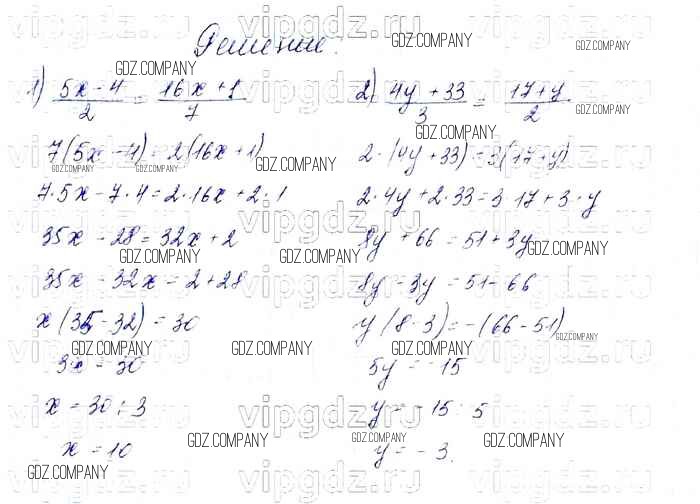 Решение:
1) (5x - 4)/2 = (16x + 1)/7
7(5x - 4) = 2(16x + 1)
7·5x - 7·4 = 2·16x + 2·1
35x - 28 = 32x + 2
35x - 32x = 2 + 28
x(35 - 32) = 30
3x = 30
x = 30 : 3
x = 10
2) (4y + 33)/3 = (17 + y)/2
2·(4y + 33) = 3(17 + y)
2·4y + 2·33 = 3·17 + 3·y
8y + 66 = 51 + 3y
8y - 3y = 51 - 66
y(8 - 3) = -(66 - 51)
5y = -15
y = -15 : 5
y = -3.
GDZ.COMPANY
vipgdz.ru